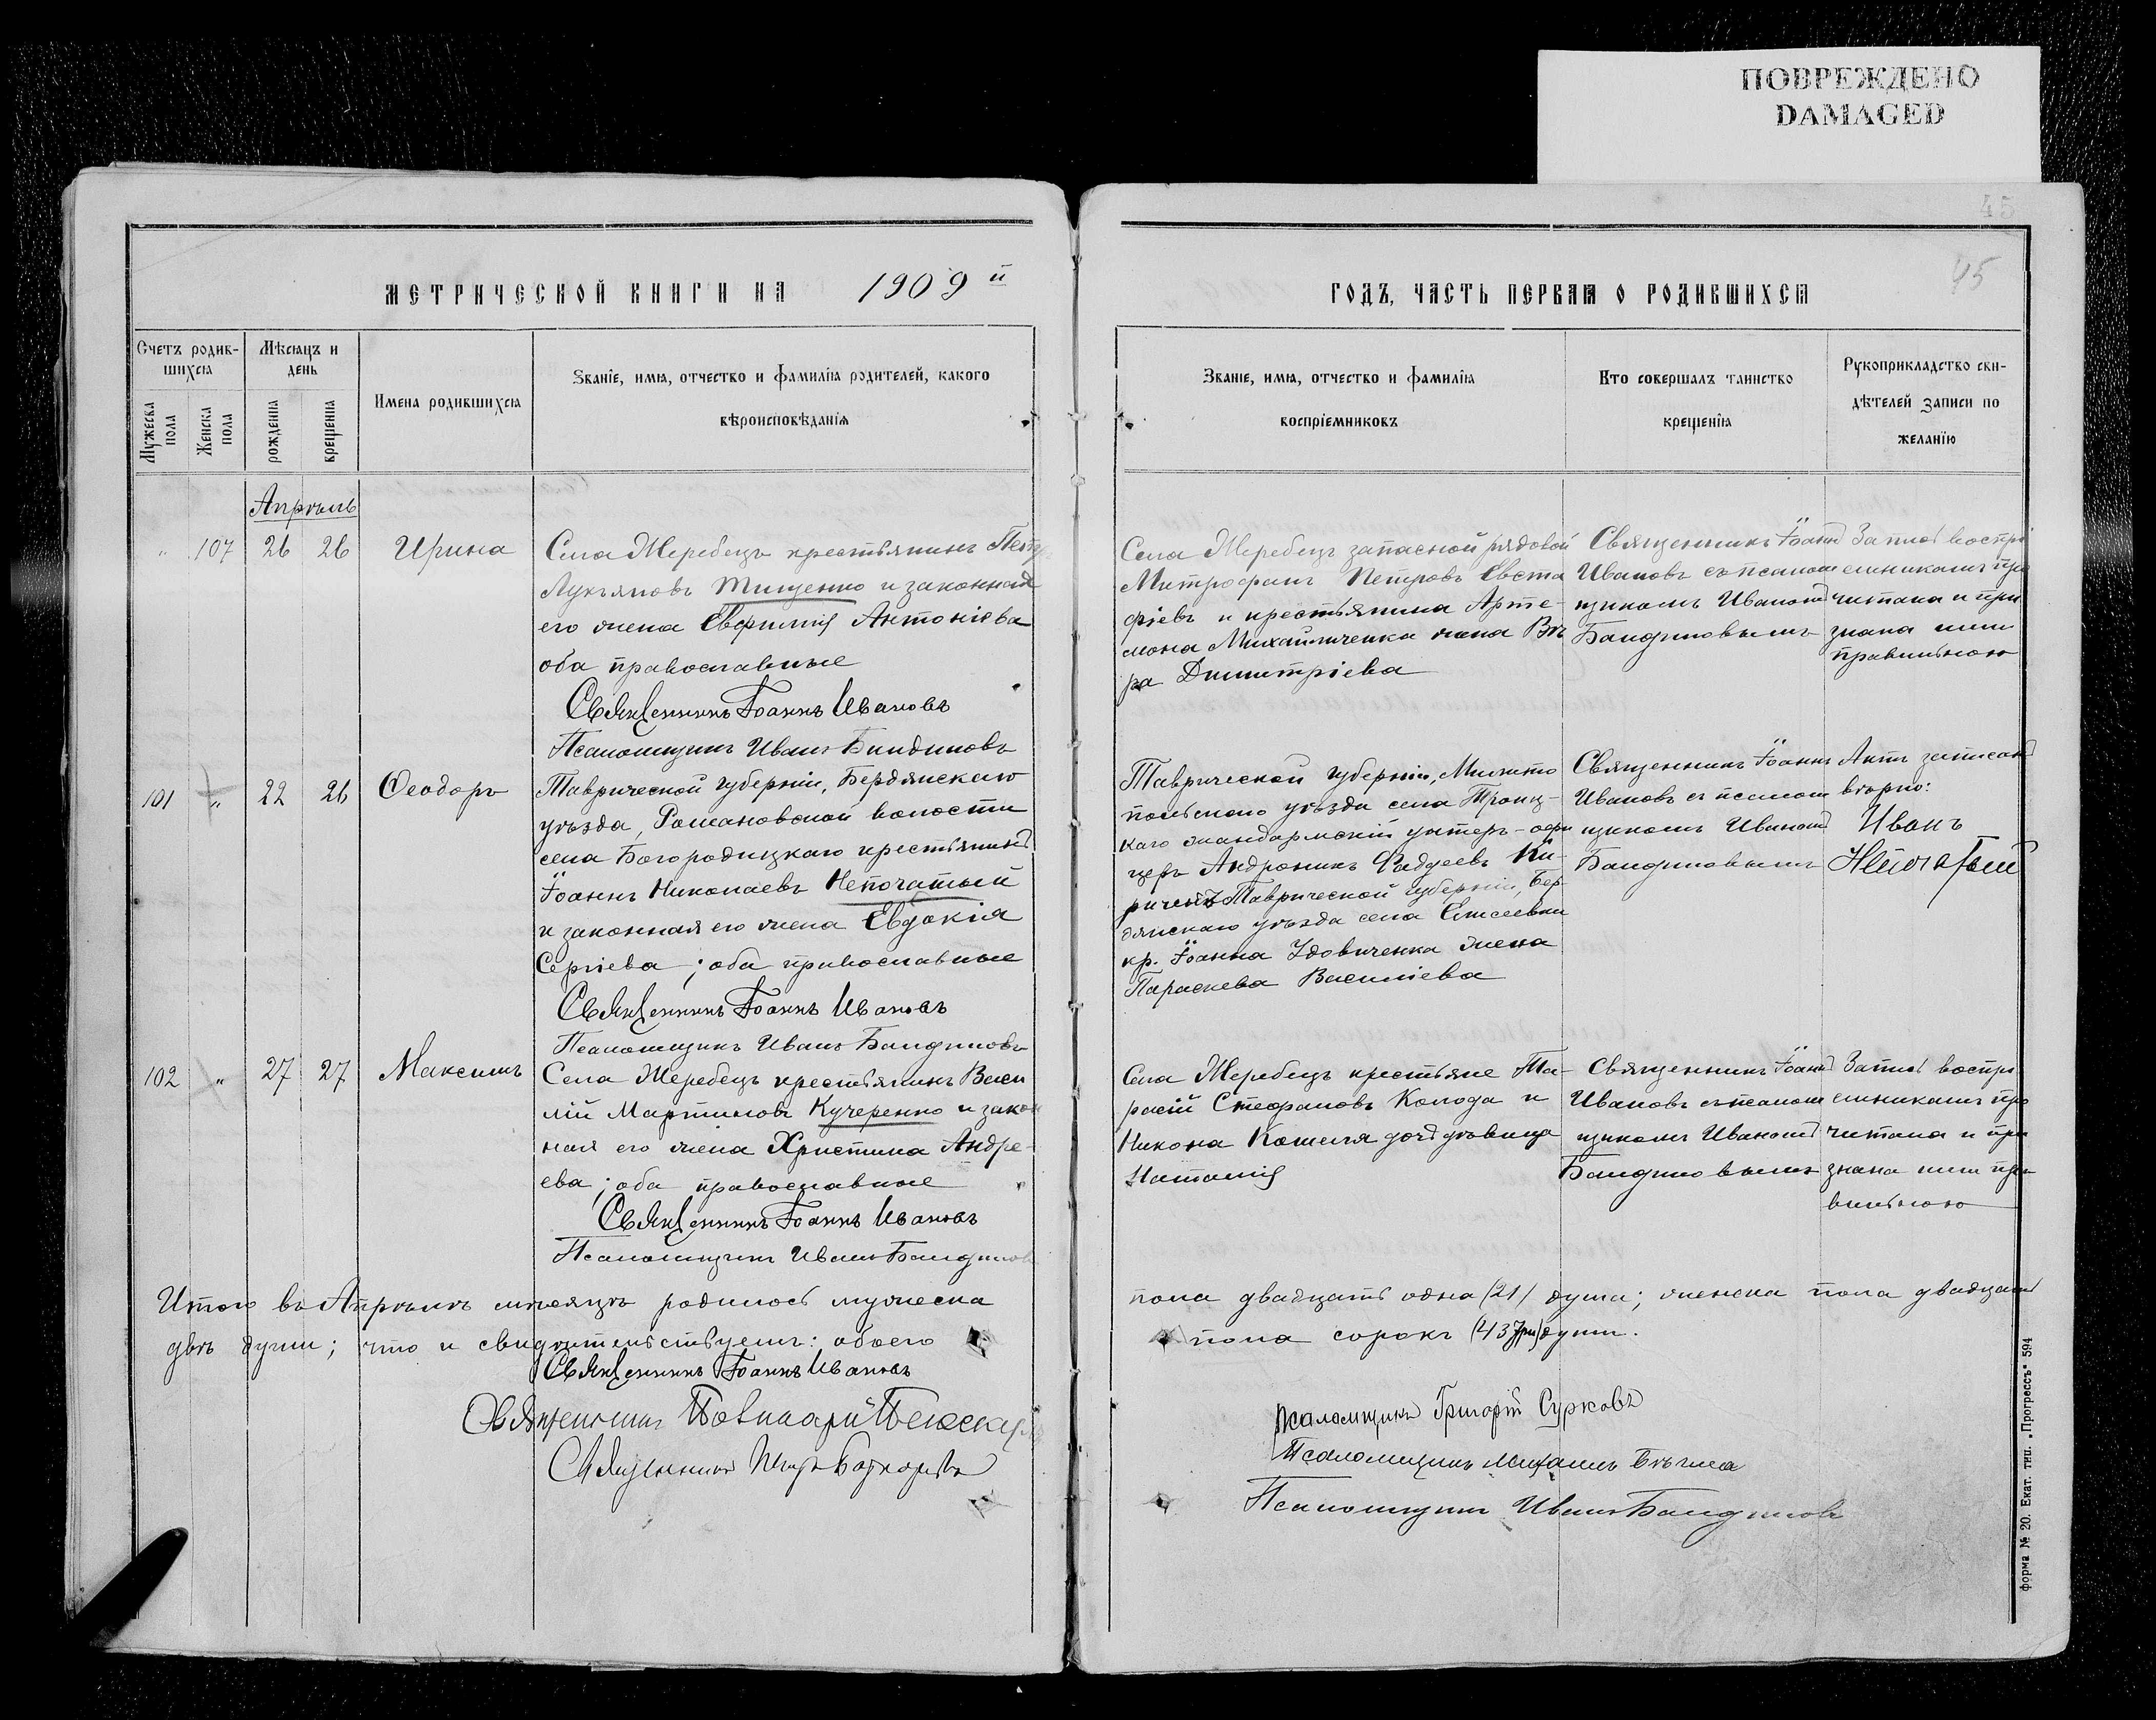 ПОВРЕЖДЕНО
DAMAGED
45
45
МЕТРИЧЕСКОЙ КНИГИ НА 1909 й
ГОДЪ, ЧАСТЬ ПЕРВАЯ О РОДИВШИХСЯ
Счетъ родив-
шихся
Мужеска пола
Женска пола
Мѣсяцъ и
день
рожденія
крещенія
Имена родившихся
Званіе, имя, отчество и фамилія родителей, какого
вѣроисповѣданія
Званіе, имя, отчество и фамилія
воспріемниковъ
Кто совершалъ таинство
крещенія
Рукоприкладство сви-
дѣтелей записи по
желанію
Апрѣль
" 107 26 26 Ирина
Села Жеребецъ крестьянинъ Петр
Лукьяновъ Тищенко и законная
его жена Евфимія Антоніева
оба православные
Священникъ Іоаннъ Ивановъ
Псаломщикъ Иванъ
Села Жеребецъ запасной рядовой
Митрофанъ Петровъ Евста
фіевъ и крестьянина Арте-
мона Михайличенка жена Вѣ
ра Димитріева
Священникъ Іоаннъ
Ивановъ съ псалом
щикомъ Иваномъ
Запись воспрі
емникамъ про
читана и при
знана ими
правильною
101 " 22 26 Ѳеодоръ
Таврической губерніи, Бердянскаго
уѣзда, Романовской волости
села Богородицкаго крестьянинъ
Іоаннъ Николаевъ Непочатый
и законная его жена Евдокія
Сергіева; оба православные
Священникъ Іоаннъ Ивановъ
Псаломщикъ Иванъ
Таврической губерніи, Мелито
польскаго уѣзда села Троиц-
каго жандармскій унтеръ-офи
церъ Андроникъ Фаддеевъ Ки-
риченко Таврической губерніи, Бер-
дянскаго уѣзда села Елисеевки
кр. Іоанна Удовиченка жена
Параскева Василіева
Священникъ Іоаннъ
Ивановъ съ псалом
щикомъ Иваномъ
Актъ записанъ
вѣрно:
Иванъ
Непочатый
102 " 27 27 Максимъ
Села Жеребецъ крестьянинъ Васи
лій Мартиновъ Кучеренко и закон
ная его жена Христина Андре-
ева; оба православные
Священникъ Іоаннъ Ивановъ
Псаломщикъ Иванъ
Села Жеребецъ крестьяне Та-
расій Стефановъ Колода и
Никона Кошеля дочь дѣвица
Наталія
Священникъ Іоаннъ
Ивановъ съ псалом
щикомъ Иваномъ
Запись воспрі
емникамъ про
читана и при
знана ими пра
вильною
Итого въ Апрѣлѣ мѣсяцѣ родилось мужеска
пола двадцать одна (21) душа; женска пола двадцать
двѣ души; что и свидѣтельствуемъ: обоего
пола сорокъ (43 три) души.
Священникъ Іоаннъ Ивановъ
Священникъ
Священникъ
Псаломщикъ Григорій Сурковъ
Псаломщикъ Михаилъ
Псаломщикъ Иванъ
форма № 20. Екат. тип. „Прогрессъ" 594